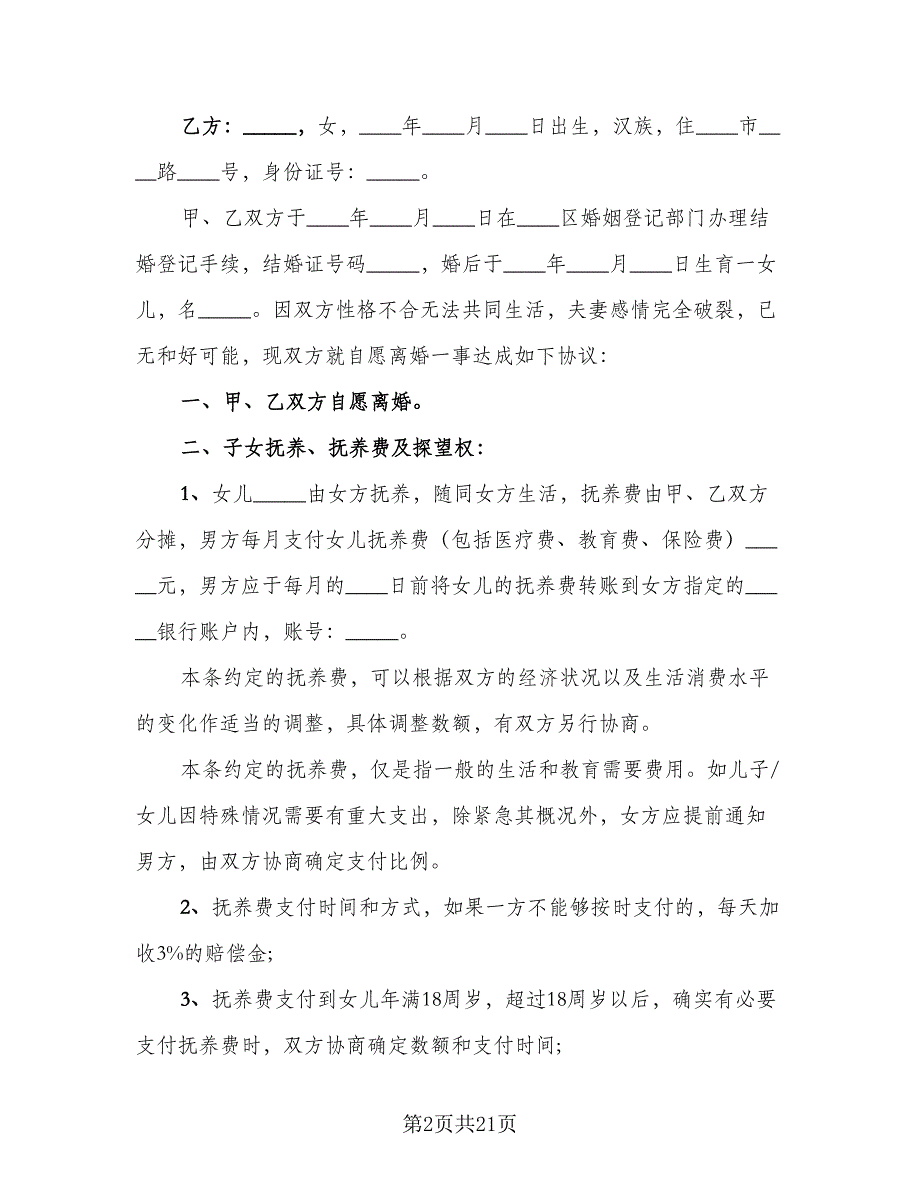 乙方：_____，女，____年____月____日出生，汉族，住____市__
__路____号，身份证号：_____。
甲、乙双方于____年____月____日在____区婚姻登记部门办理结
婚登记手续，结婚证号码_____，婚后于____年____月____日生育一女
儿，名_____。因双方性格不合无法共同生活，夫妻感情完全破裂，已
无和好可能，现双方就自愿离婚一事达成如下协议：
一、甲、乙双方自愿离婚。
二、子女抚养、抚养费及探望权：
1、女儿_____由女方抚养，随同女方生活，抚养费由甲、乙双方
分摊，男方每月支付女儿抚养费（包括医疗费、教育费、保险费）___
__元，男方应于每月的____日前将女儿的抚养费转账到女方指定的___
__银行账户内，账号：_____。
本条约定的抚养费，可以根据双方的经济状况以及生活消费水平
的变化作适当的调整，具体调整数额，有双方另行协商。
本条约定的抚养费，仅是指一般的生活和教育需要费用。如儿子/
女儿因特殊情况需要有重大支出，除紧急其概况外，女方应提前通知
男方，由双方协商确定支付比例。
2、抚养费支付时间和方式，如果一方不能够按时支付的，每天加
收3%的赔偿金;
3、抚养费支付到女儿年满18周岁，超过18周岁以后，确实有必要
支付抚养费时，双方协商确定数额和支付时间;
第2页共21页